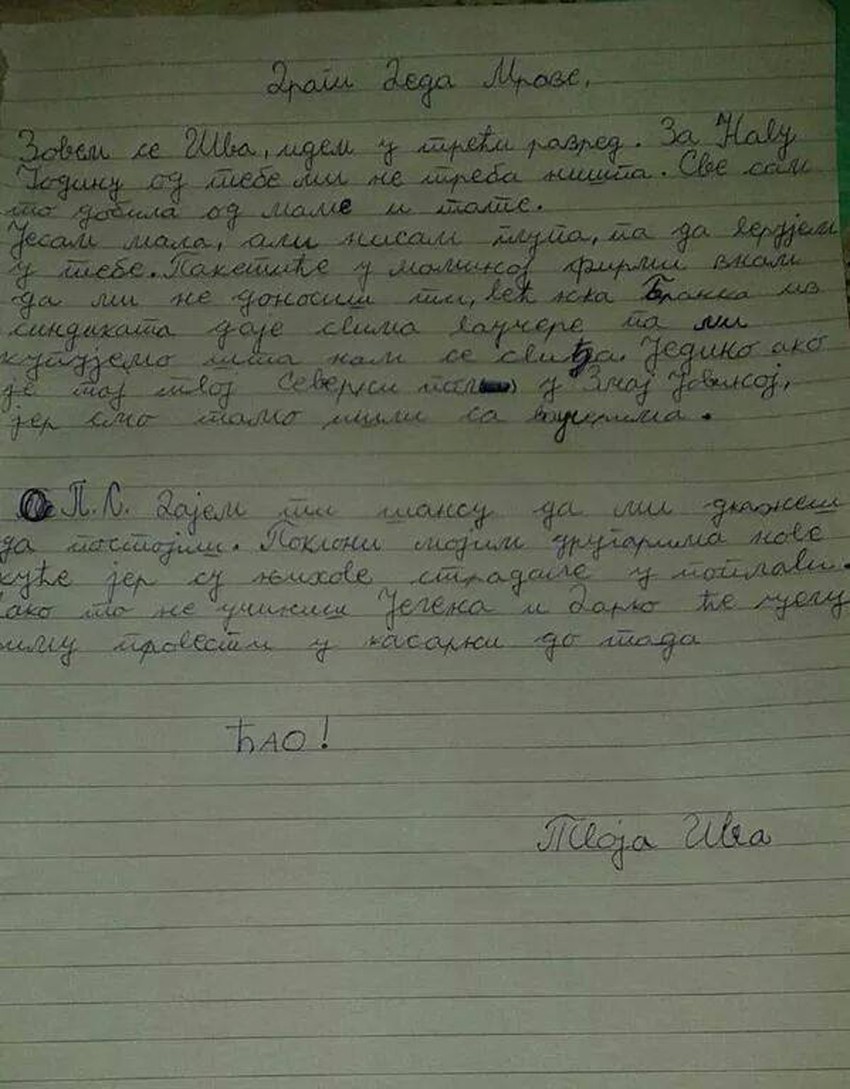 Драги Деда Мразе,
Зовем се Ива, идем у трећи разред. За Нову
Годину од тебе ми не треба ништа. Све сам
то добила од маме и тате.
Јесам мала, али нисам глупа, па да верујем
у тебе. Пакетиће у маминој фирми знам
да ми не доносиш ти, већ тека Бранка из
синдиката даје свима ваучере па ми
купујемо шта нам се свиђа. Једино ако
је тај твој Северни пол у Змај Јовиној,
јер смо тамо ишли са ваучерима.
П.С. Дајем ти шансу да ми докажеш
да постојиш. Поклони мојим другарима нове
куће јер су њихове страдале у поплави.
Ако то не учиниш Јелена и Дарко ће целу
зиму провести у касарни до тада
ЋАО!
Твоја Ива